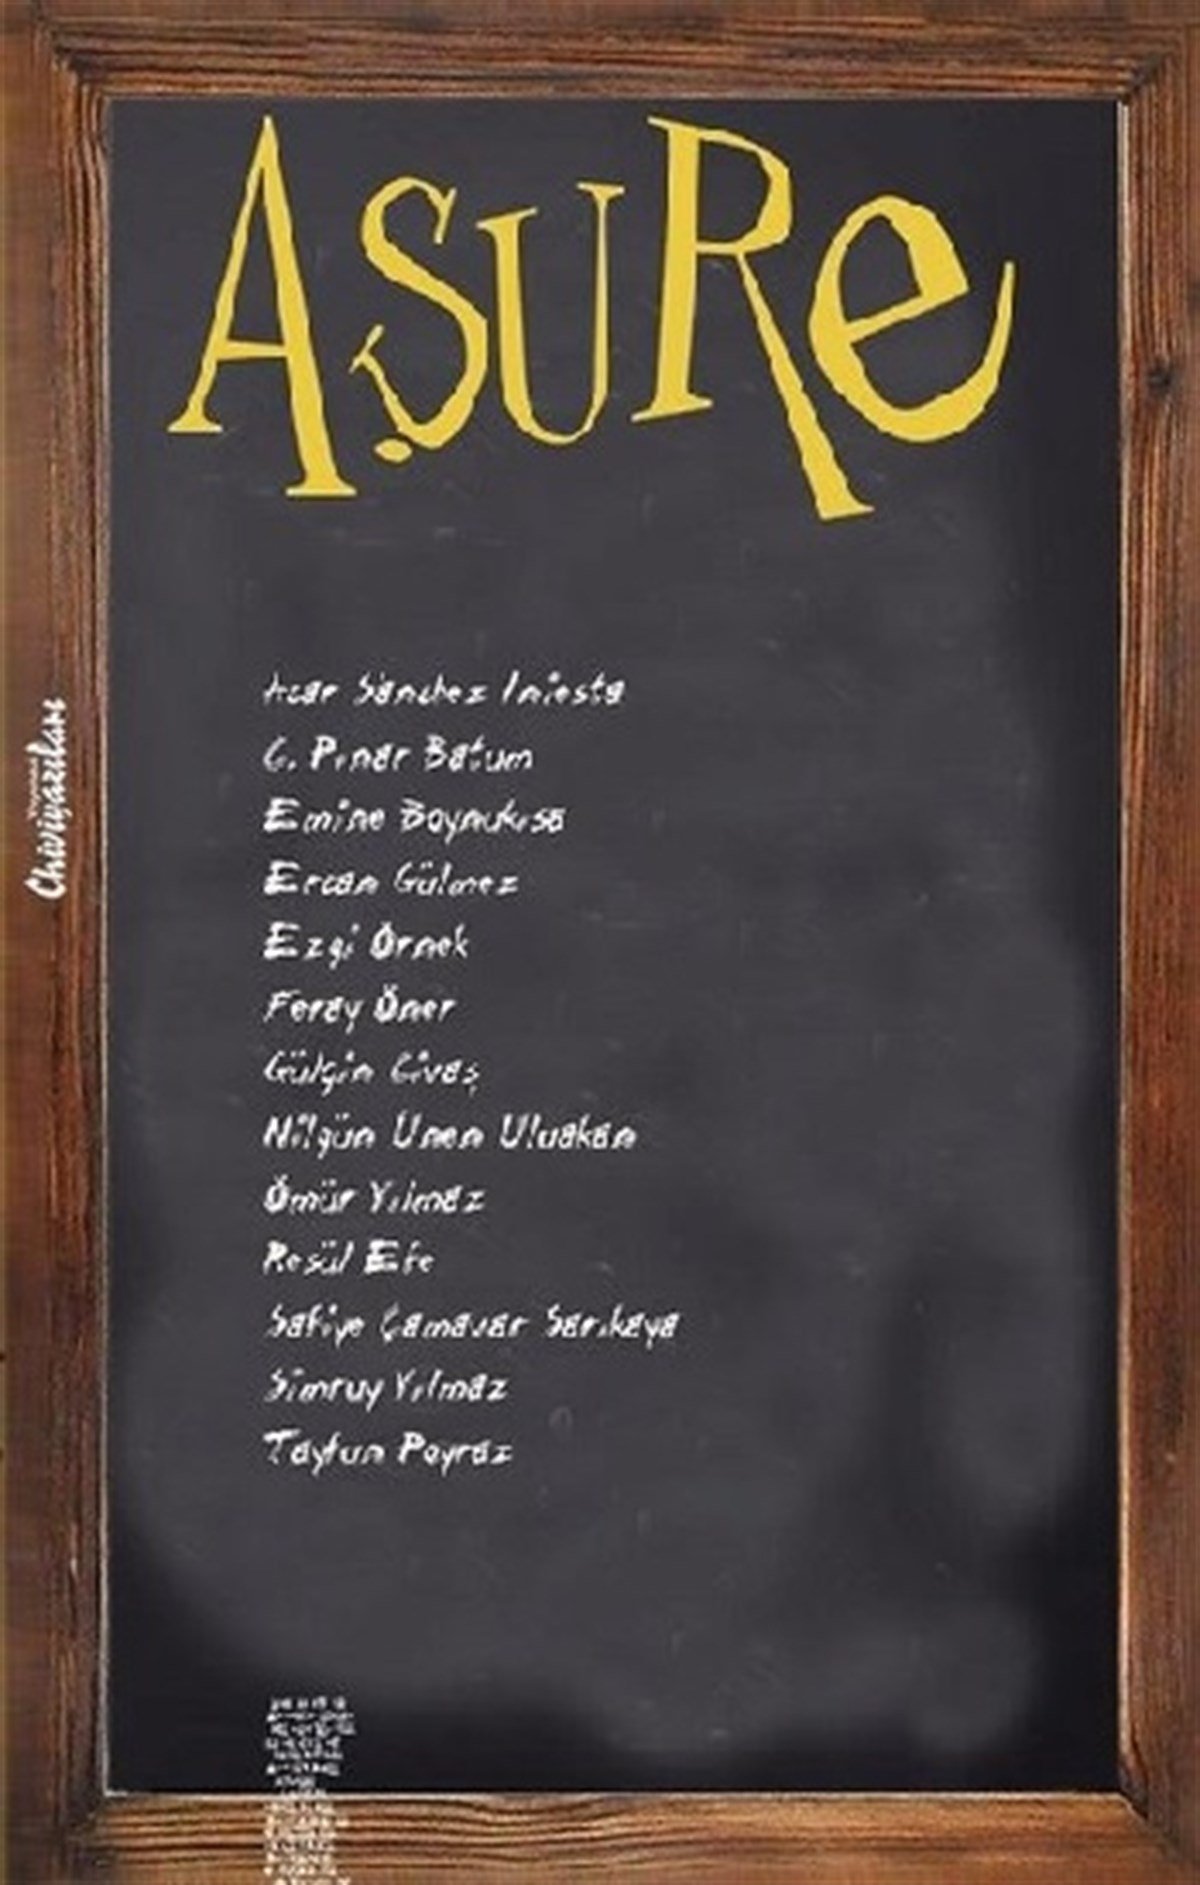 AŞURe
Acar Sanchez Iniesta
G. Pınar Batum
Emine Boynukısa
Ercan Gülmez
Ezgi Örnek
Feray Öner
Gülçin Civaş
Nilgün Ünen Uluakan
Ömür Yılmaz
Resül Efe
Safiye Çamavar Sarıkaya
Simruy Yılmaz
Tayfun Poyraz
Chiviyazıları